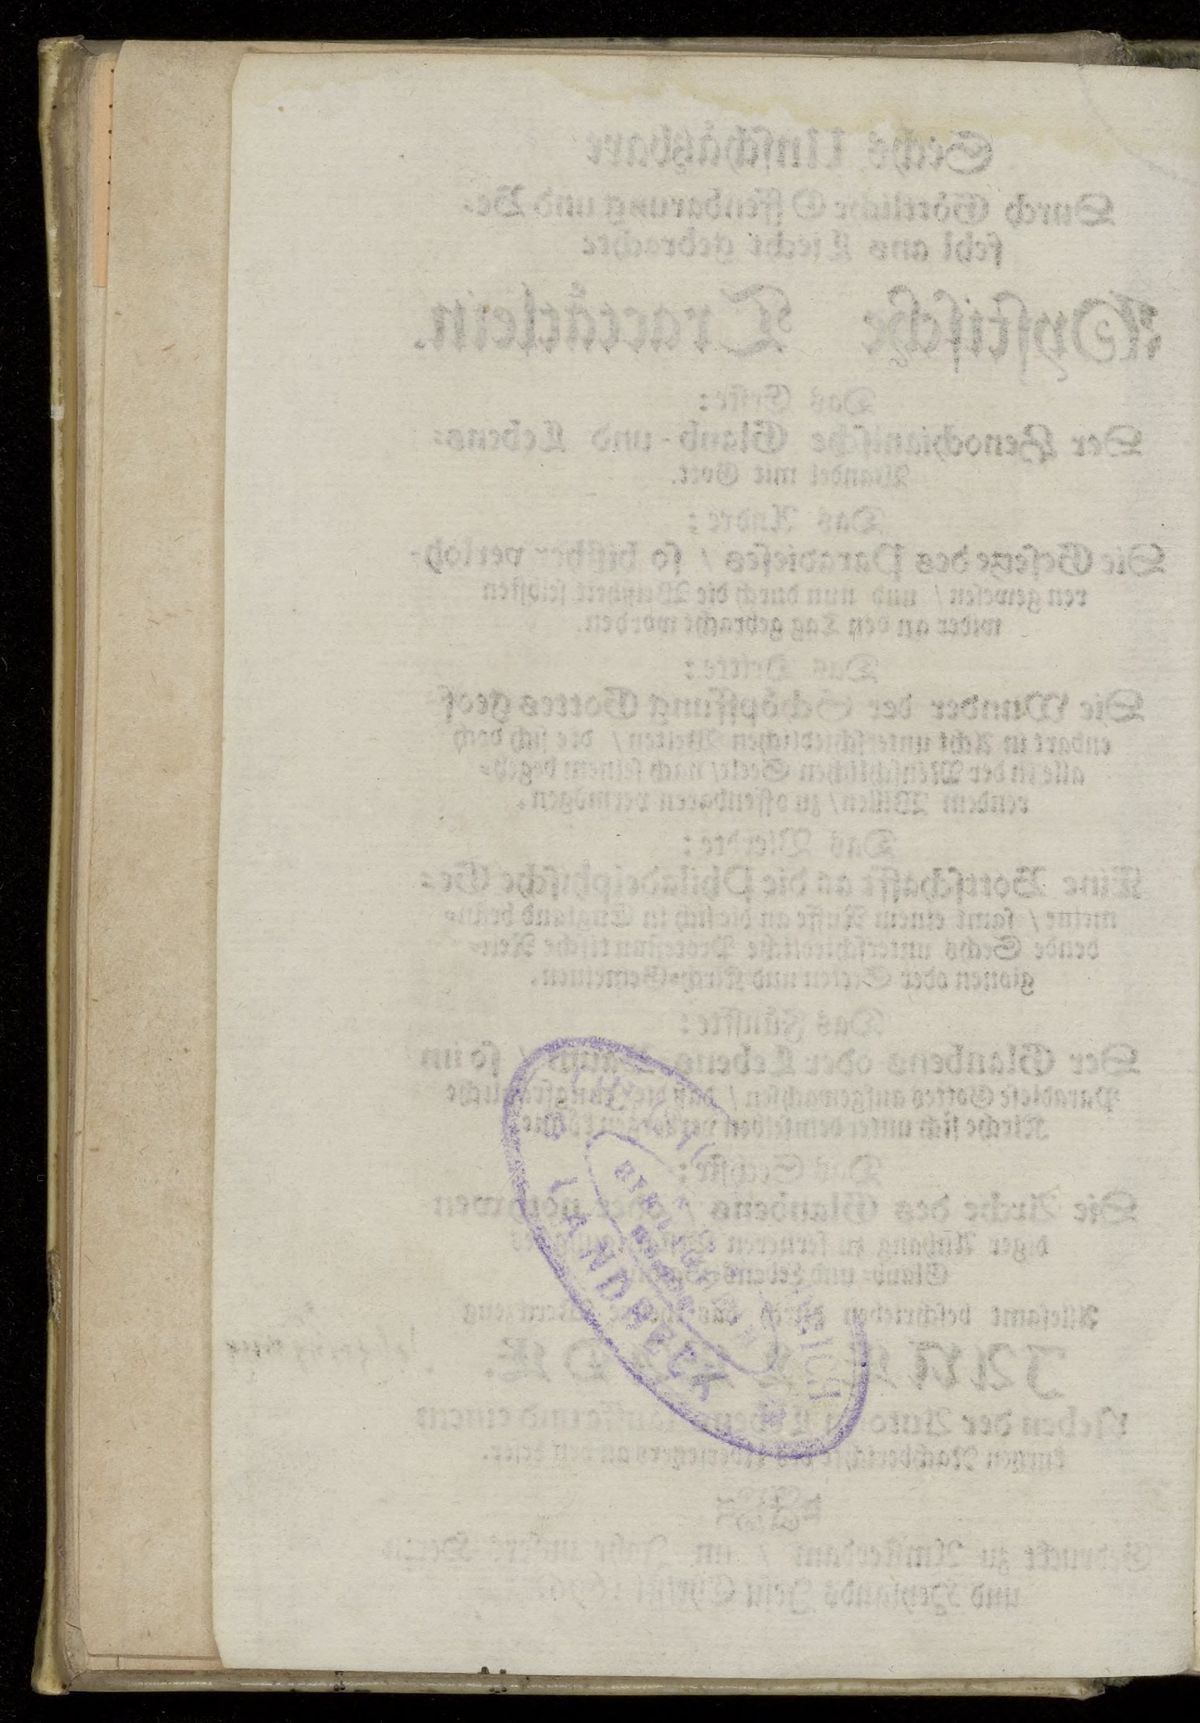 Sechs Unschätzbare
Durch Göttliche Offenbarung und Be-
fehl ans Liecht gebrachte
Mystische Tractätlein.
Das Erste:
Der Henochianische Glaub- und Lebens-
Wandel mit Gott.
Das Andre:
Die Gesetze des Paradieses / so bißher verloh-
ren gewesen / und nun durch die Weißheit selbsten
wider an den Tag gebracht worden.
Das Dritte:
Die Wunder der Schöpffung Gottes geof
enbart in Acht unterschiedlichen Welten / die sich doch
alle in der Menschlichen Seele / nach seinem begeh-
rendem Willen / zu offenbaren vermögen.
Das Vierdte:
Eine Bottschafft an die Philadelphische Ge-
meine / samt einem Ruffe an die sich in Engeland befin-
dende Sechs unterschiedliche Protestantische Reli-
gionen oder Secten und Kirch-Gemeinen.
Das Fünffte:
Der Glaubens oder Lebens Baum / so im
Paradiese Gottes aufgewachsen / daß die Jungfräuliche
Kirche sich unter demselben verbergen könne.
Das Sechste:
Die Arche des Glaubens / oder nohtwen
diger Anhang zu fernerem
Glaub- und Lebens-
Allesamt beschrieben durch das
JANE LEADE.
Neben der Autorin Lebens-Lauffe und einem
kurtzen Nachberichte des Uberseters an den Leser.
Gedruckt zu Amsterdam / im Jahr unsers Herrn
und Heylands Jesu Christi
LANDSBECK